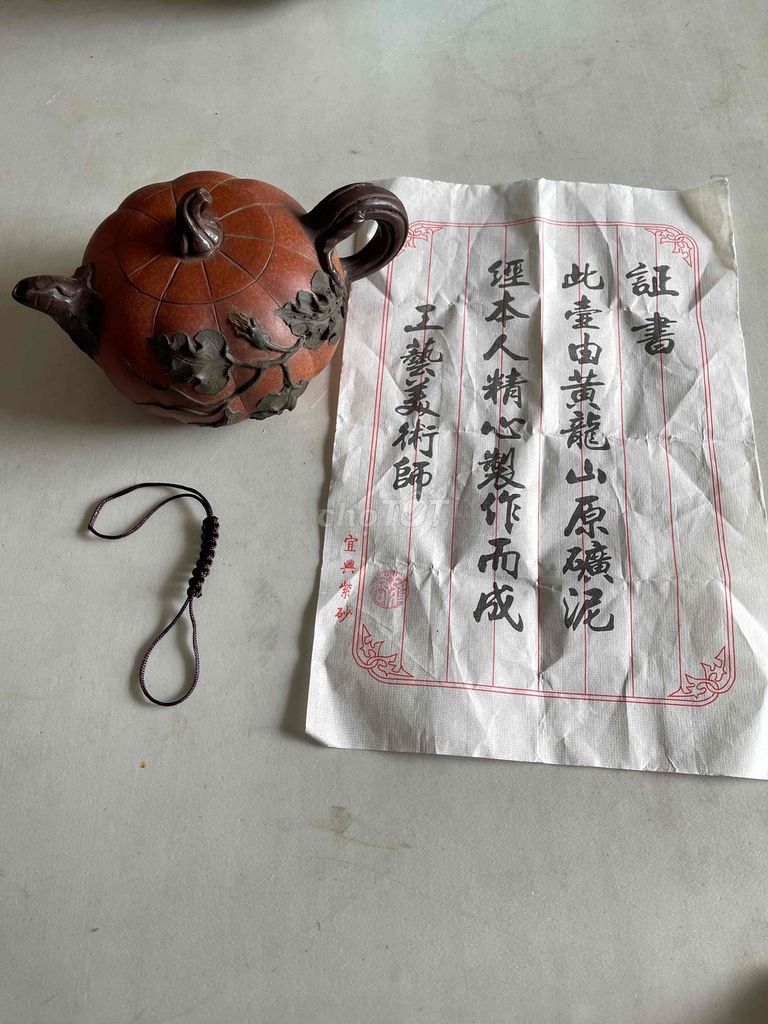 証書
此壺由黃龍山原礦泥
經本人精心製作而成
工藝美術師
宜興紫砂
choTOT